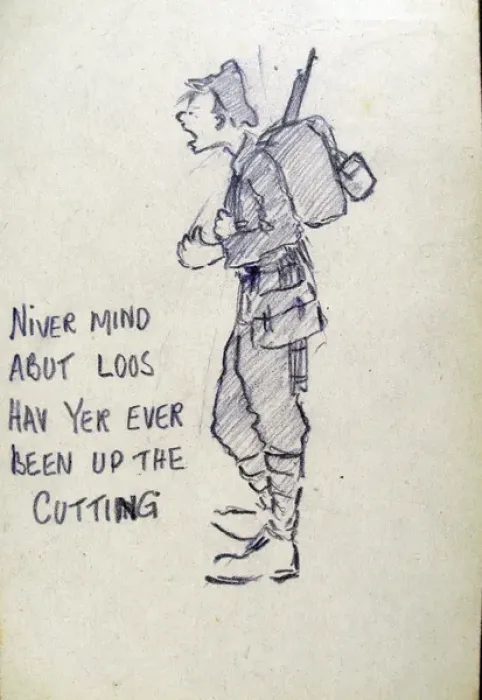 NIVER MIND
ABUT LOOS
HAV YER EVER
BEEN UP THE
CUTTING